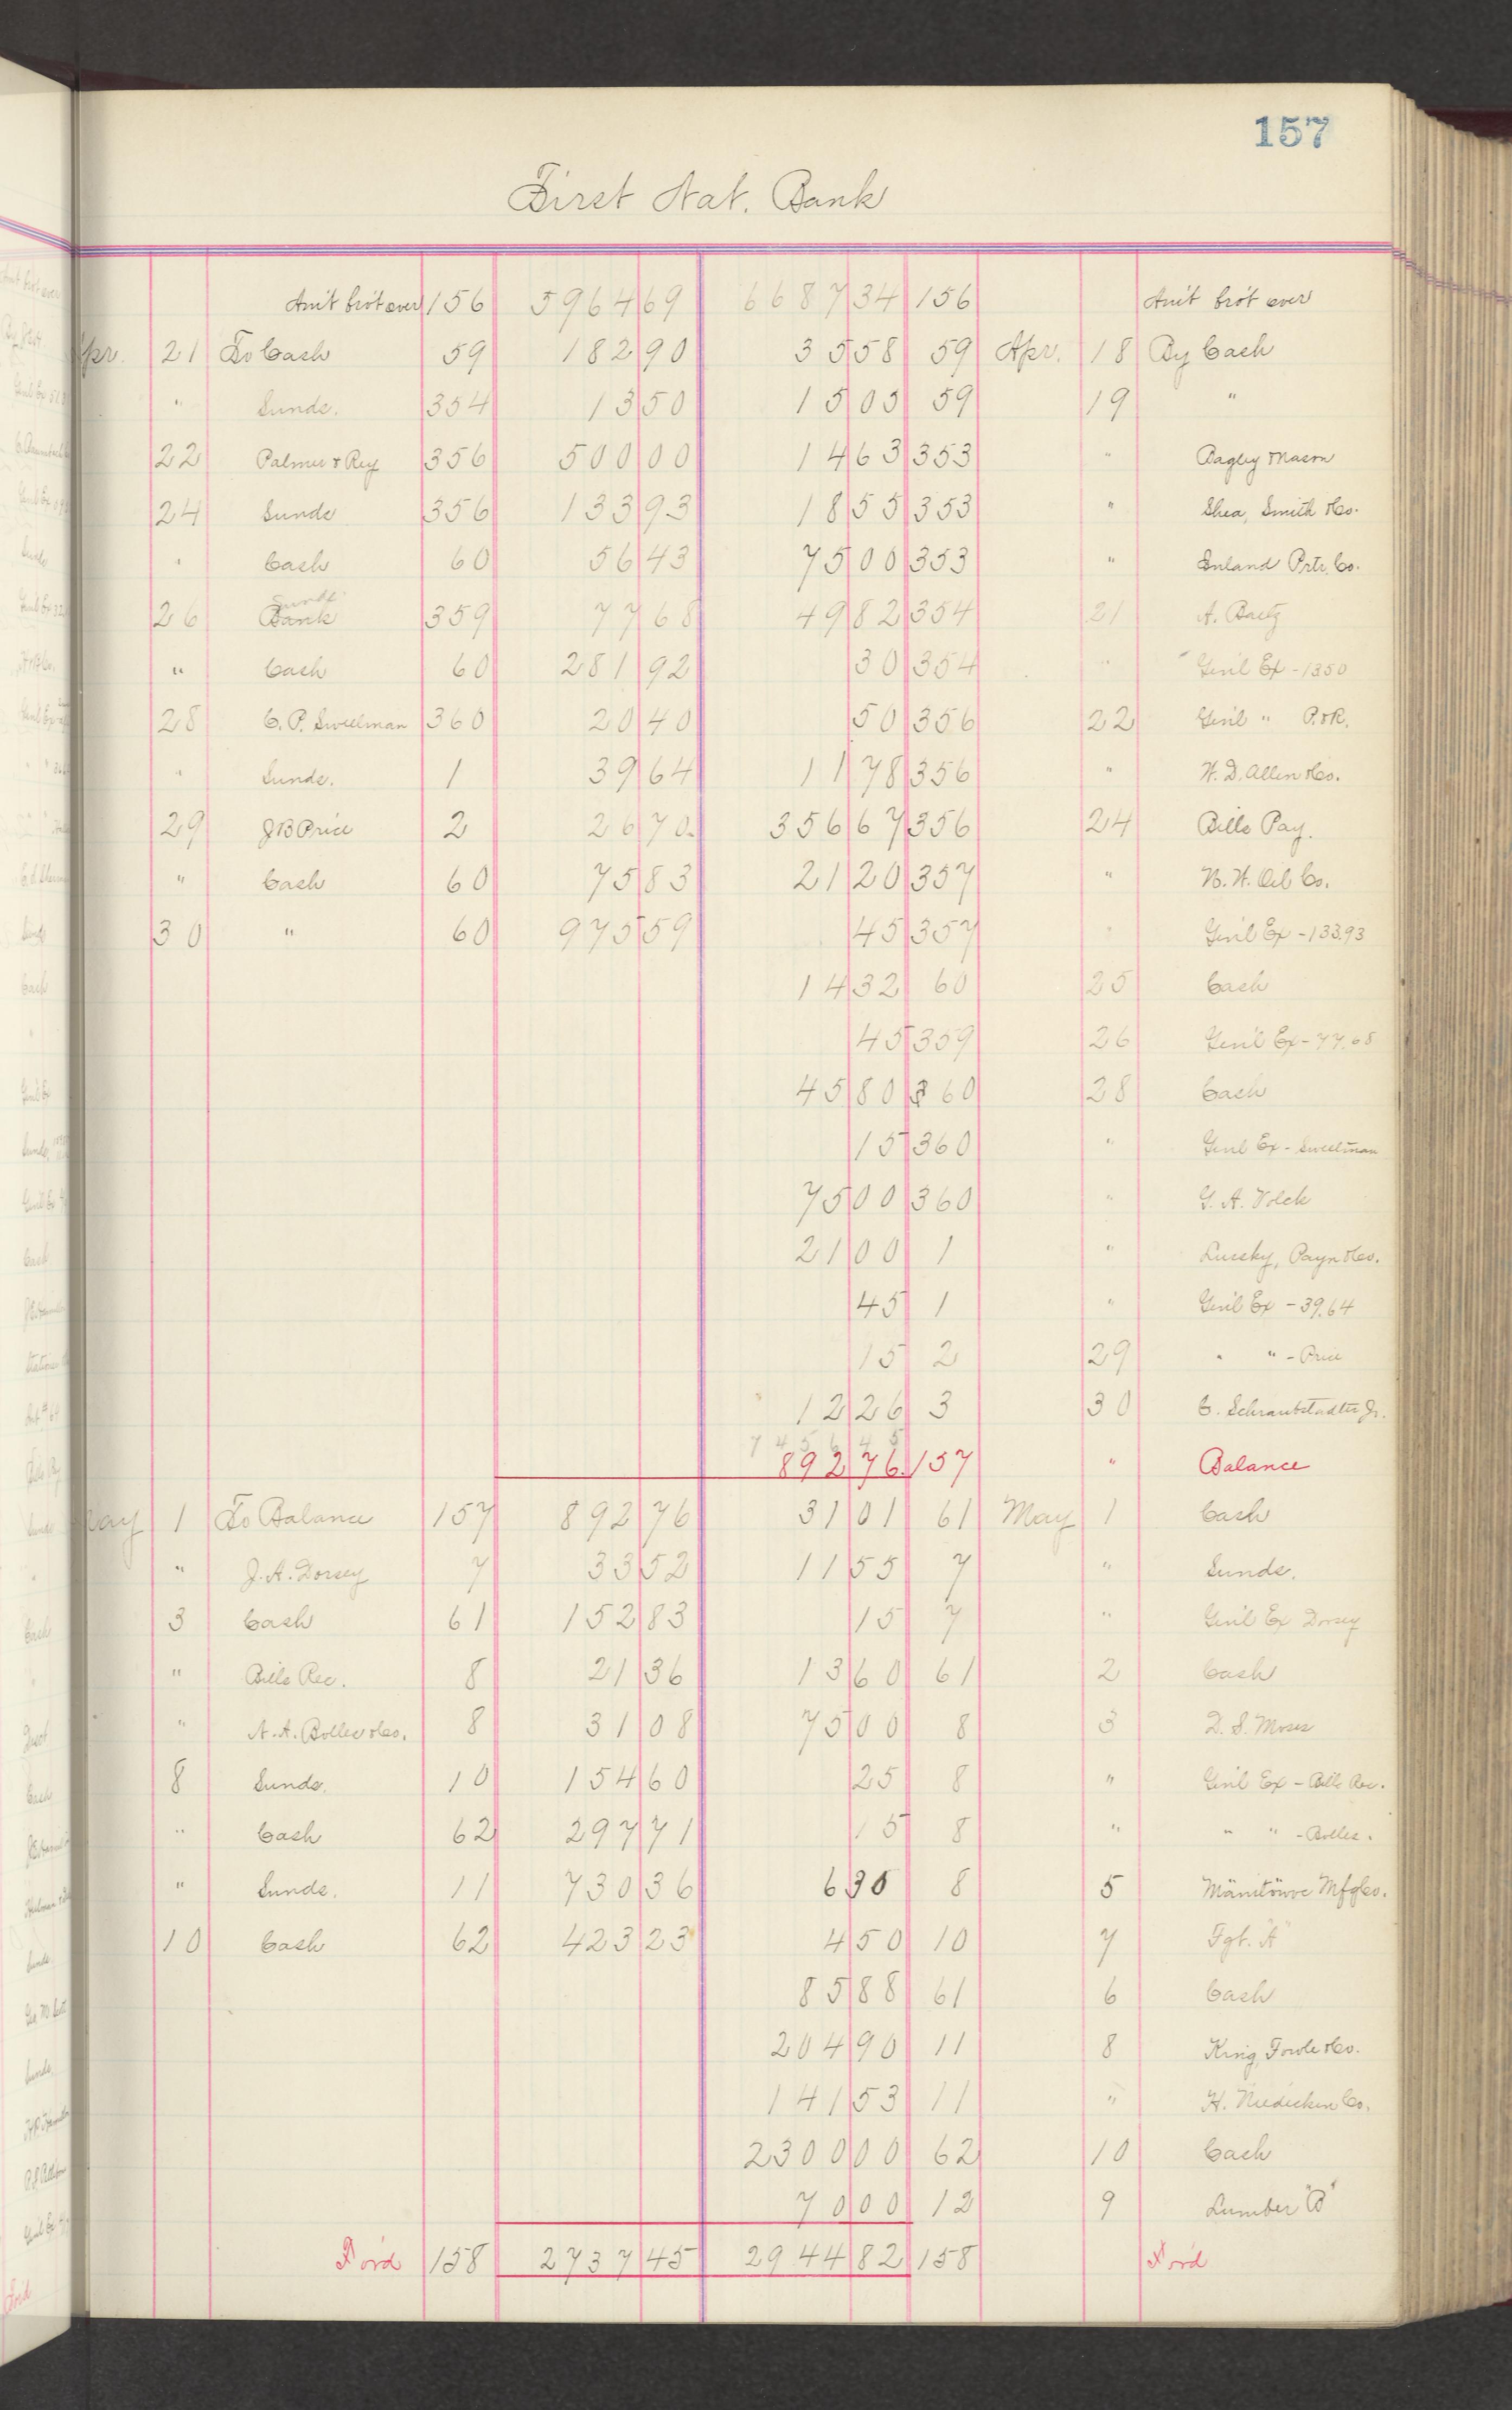 157
First Nat. Bank
Am't bro't over 156 5964 69 6687 34 156 Am't bro't over
Apr. 21 To Cash 59 182 90 35 58 59 Apr. 18 By Cash
" Sunds. 354 13 50 15 05 59 19 "
22 Palmer & Rey 356 500 00 14 63 353 " Bagley & Mason
24 Sunds 356 133 93 18 55 353 " Shea, Smith & Co.
" Cash 60 56 43 75 00 353 " Inland Prtr. Co.
26 Bank Sunds. 359 77 68 49 82 354 21 A. Baetz
" Cash 60 281 92 30 354 " Gen'l Ex - 1350
28 C. P. Sweetman 360 20 40 50 356 22 Gen'l " P. & R.
" Sunds. 1 39 64 11 78 356 " W. D. Allen & Co.
29 J B Price 2 26 70 356 67 356 24 Bills Pay.
" Cash 60 75 83 21 20 357 " N. W. Oil Co.
30 " 60 975 59 45 357 " Gen'l Ex - 133.93
14 32 60 25 Cash
45 359 26 Gen'l Ex - 77.68
45 80 60 28 Cash
15 360 " Genl Ex - Sweetman
75 00 360 " G. A. Volck
21 00 1 " Luecky, Payn & Co.
45 1 " Gen'l Ex - 39.64
15 2 29 " " - Price
12 26 3 30 C. Schraubstadter Jr.
7456 45
892 76 157 " Balance
May 1 To Balance 157 892 76 31 01 61 May 1 Cash
" J. A. Dorsey 7 33 52 11 55 7 " Sunds.
3 Cash 61 152 83 15 7 " Gen'l Ex Dorsey
" Bills Rec. 8 21 36 13 60 61 2 Cash
" N. A. Bolles & Co. 8 31 08 75 00 8 3 D. S. Moses
8 Sunds. 10 154 60 25 8 " Gen'l Ex - Bills Rec.
" Cash 62 297 71 15 8 " " " - Bolles.
" Sunds. 11 730 36 6 30 8 5 Manitowoc Mfg Co.
10 Cash 62 423 23 4 50 10 7 Fgt. "A"
85 88 61 6 Cash
204 90 11 8 King, Fowle & Co.
141 53 11 " H. Niedecken Co.
2300 00 62 10 Cash
70 00 12 9 Lumber "B"
For'd 158 2737 45 2944 82 158 For'd